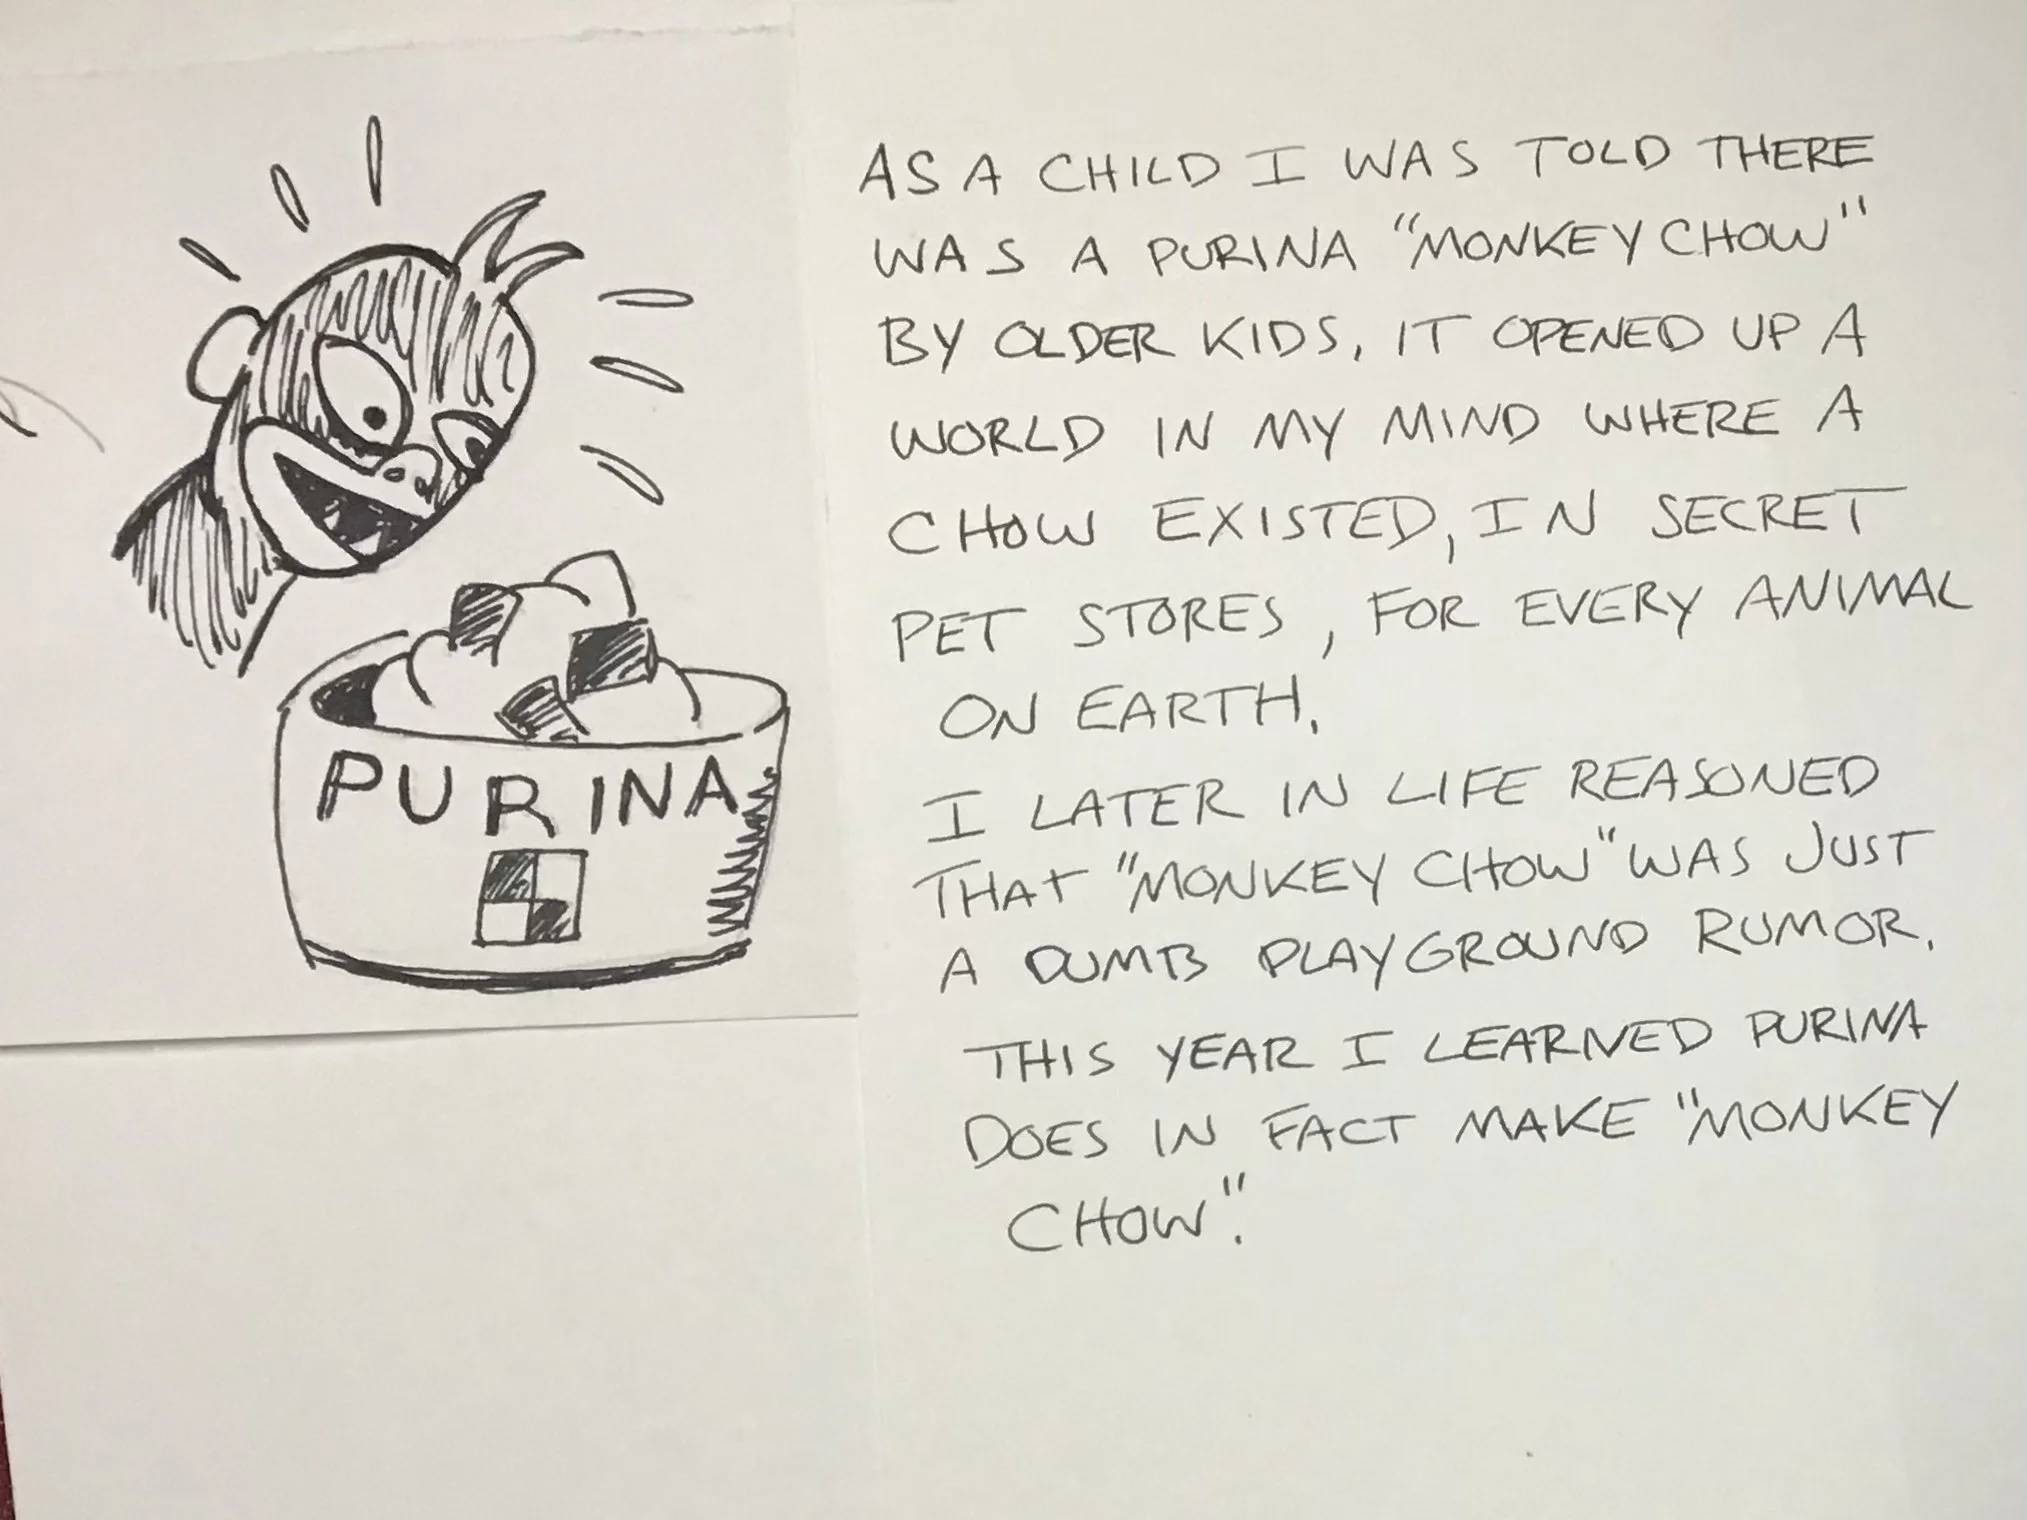 PURINA
AS A CHILD I WAS TOLD THERE
WAS A PURINA "MONKEY CHOW"
BY OLDER KIDS. IT OPENED UP A
WORLD IN MY MIND WHERE A
CHOW EXISTED, IN SECRET
PET STORES, FOR EVERY ANIMAL
ON EARTH.
I LATER IN LIFE REASONED
THAT "MONKEY CHOW" WAS JUST
A DUMB PLAYGROUND RUMOR.
THIS YEAR I LEARNED PURINA
DOES IN FACT MAKE "MONKEY
CHOW".